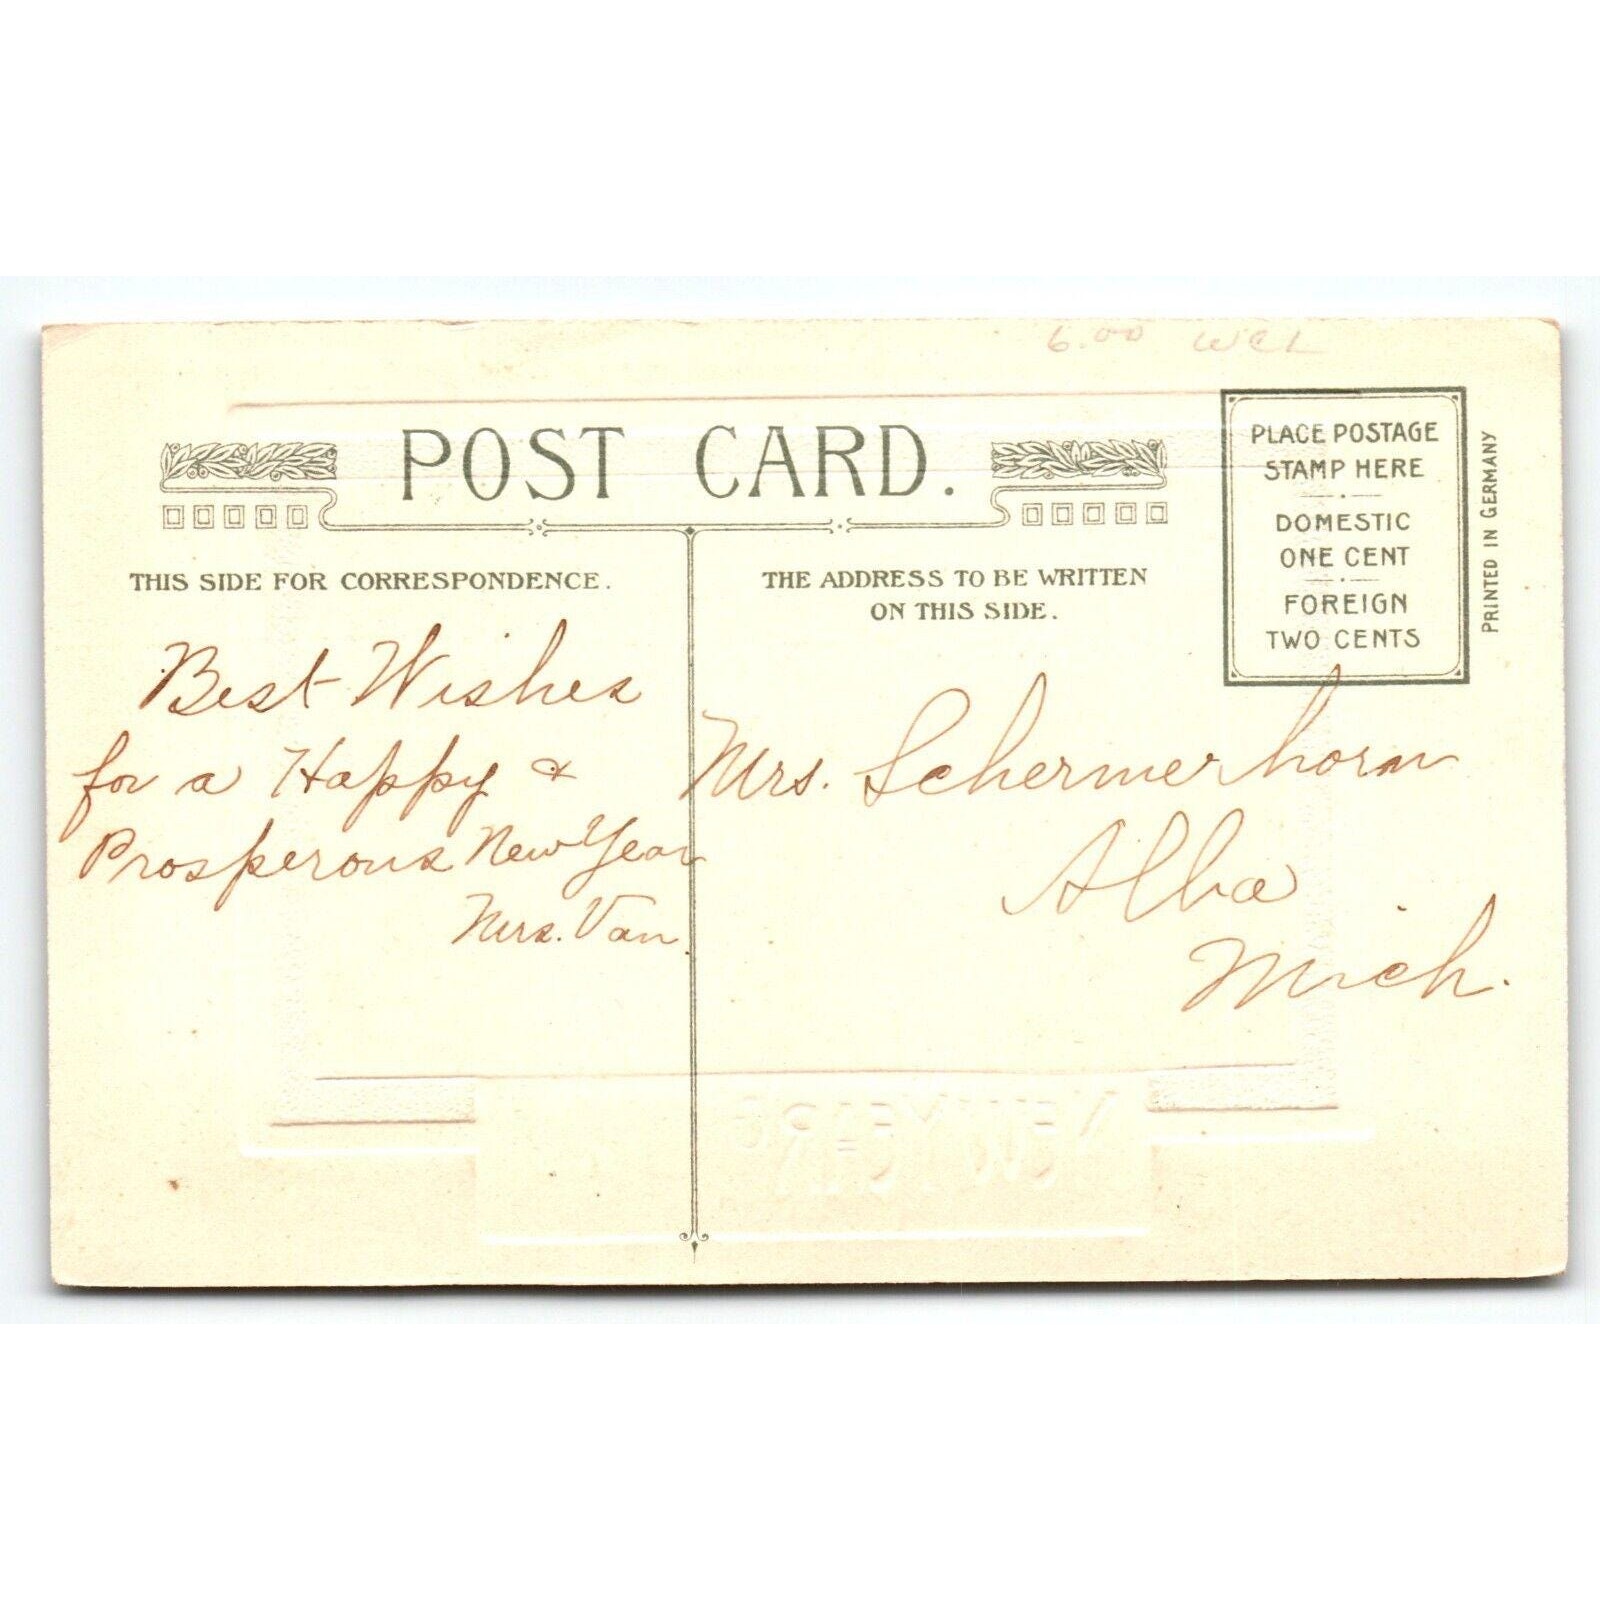 6.00 WCL
POST CARD.
PLACE POSTAGE
STAMP HERE
DOMESTIC
ONE CENT
FOREIGN
TWO CENTS
PRINTED IN GERMANY
THIS SIDE FOR CORRESPONDENCE.
Best Wishes
for a Happy &
Prosperous New Year
Mrs. Van.
THE ADDRESS TO BE WRITTEN
ON THIS SIDE.
Mrs. Schermerhorn
Alba
Mich.